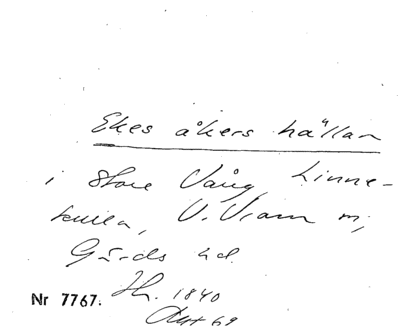 Ekes åkers hällan
i Store Vång, Linne-
kullen, V. Vram m;
Gärds hd.
Nr 7767. Jh. 1840
Akt 69